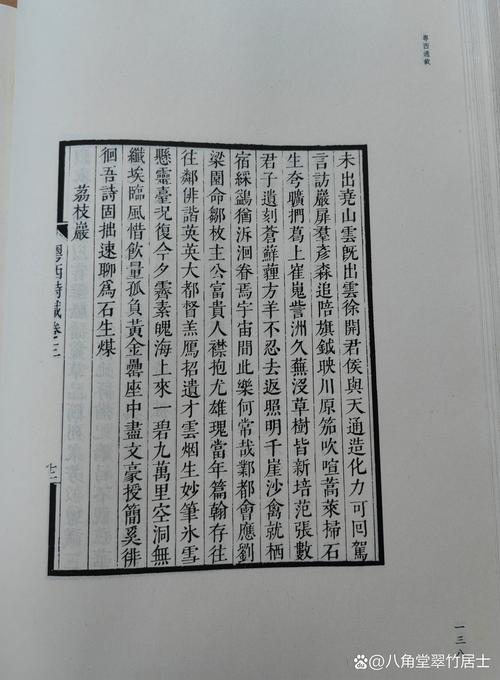 粵西通載
未出堯山雲既出雲徐開君侯與天通造化力可回駕
言訪巖屏羣彥森追陪旗鉞映川原笳吹喧蒿萊掃石
生夸曠捫葛上崔嵬訾洲久蕪沒草樹皆新培范張數
君子遺刻蒼蘚薶方羊不忍去返照明千崖沙禽就栖
宿綵鷁猶泝洄眷焉宇宙間此樂何常哉鄴都會應劉
梁園命鄒枚主公富貴人襟抱尤雄瑰當年篇翰存往
往鄰俳諧英英大都督羔鴈招遺才雲烟生妙筆氷雪
懸靈臺況復今夕霽素魄海上來一碧九萬里空洞無
纖埃臨風惜飲量孤負黃金罍座中盡文豪授簡奚徘
徊吾詩固拙速聊爲石生煤
荔枝巖
粵西詩載卷三
十二
一三八
头条 @八角堂翠竹居士